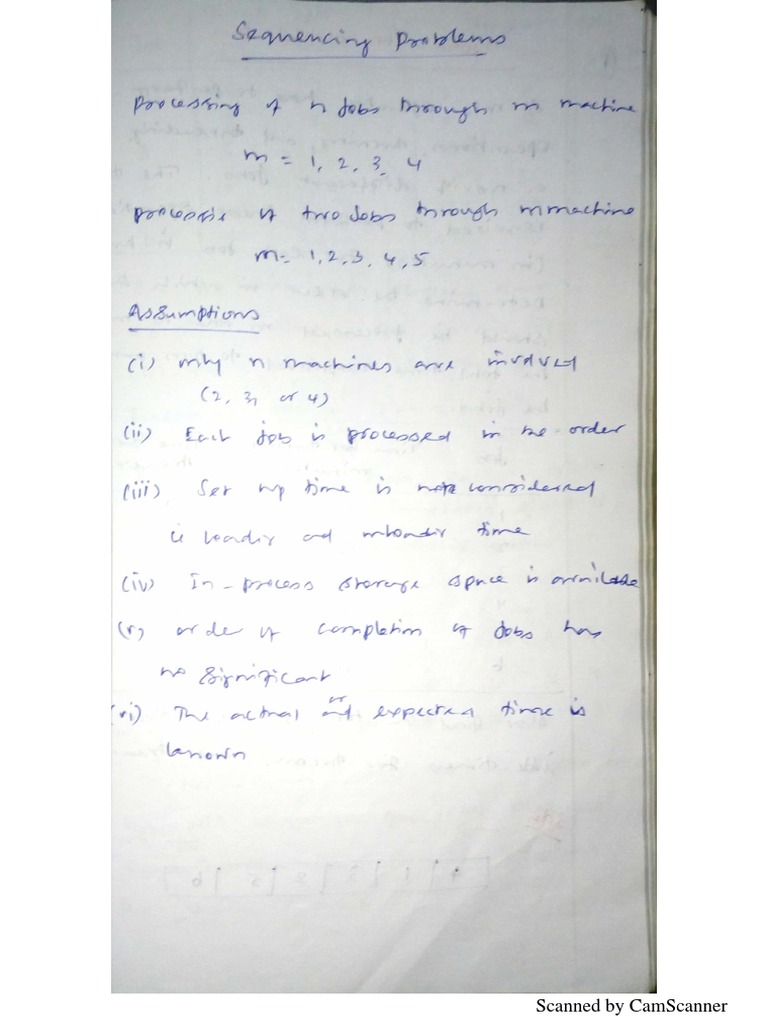 Sequencing Problems
Processing of n Jobs through m machine
m = 1, 2, 3, 4
processie of two Jobs through m machine
m = 1, 2, 3, 4, 5
Assumptions
(i) only n machines are involved
(2, 3, or 4)
(ii) Each job is processed in the order
(iii) Set up time is not considered
is loadir and unloadir time
(iv) In-process storage space is available
(v) order of completion of Jobs has
no significant
(vi) The actual or expected time is
known
Scanned by CamScanner